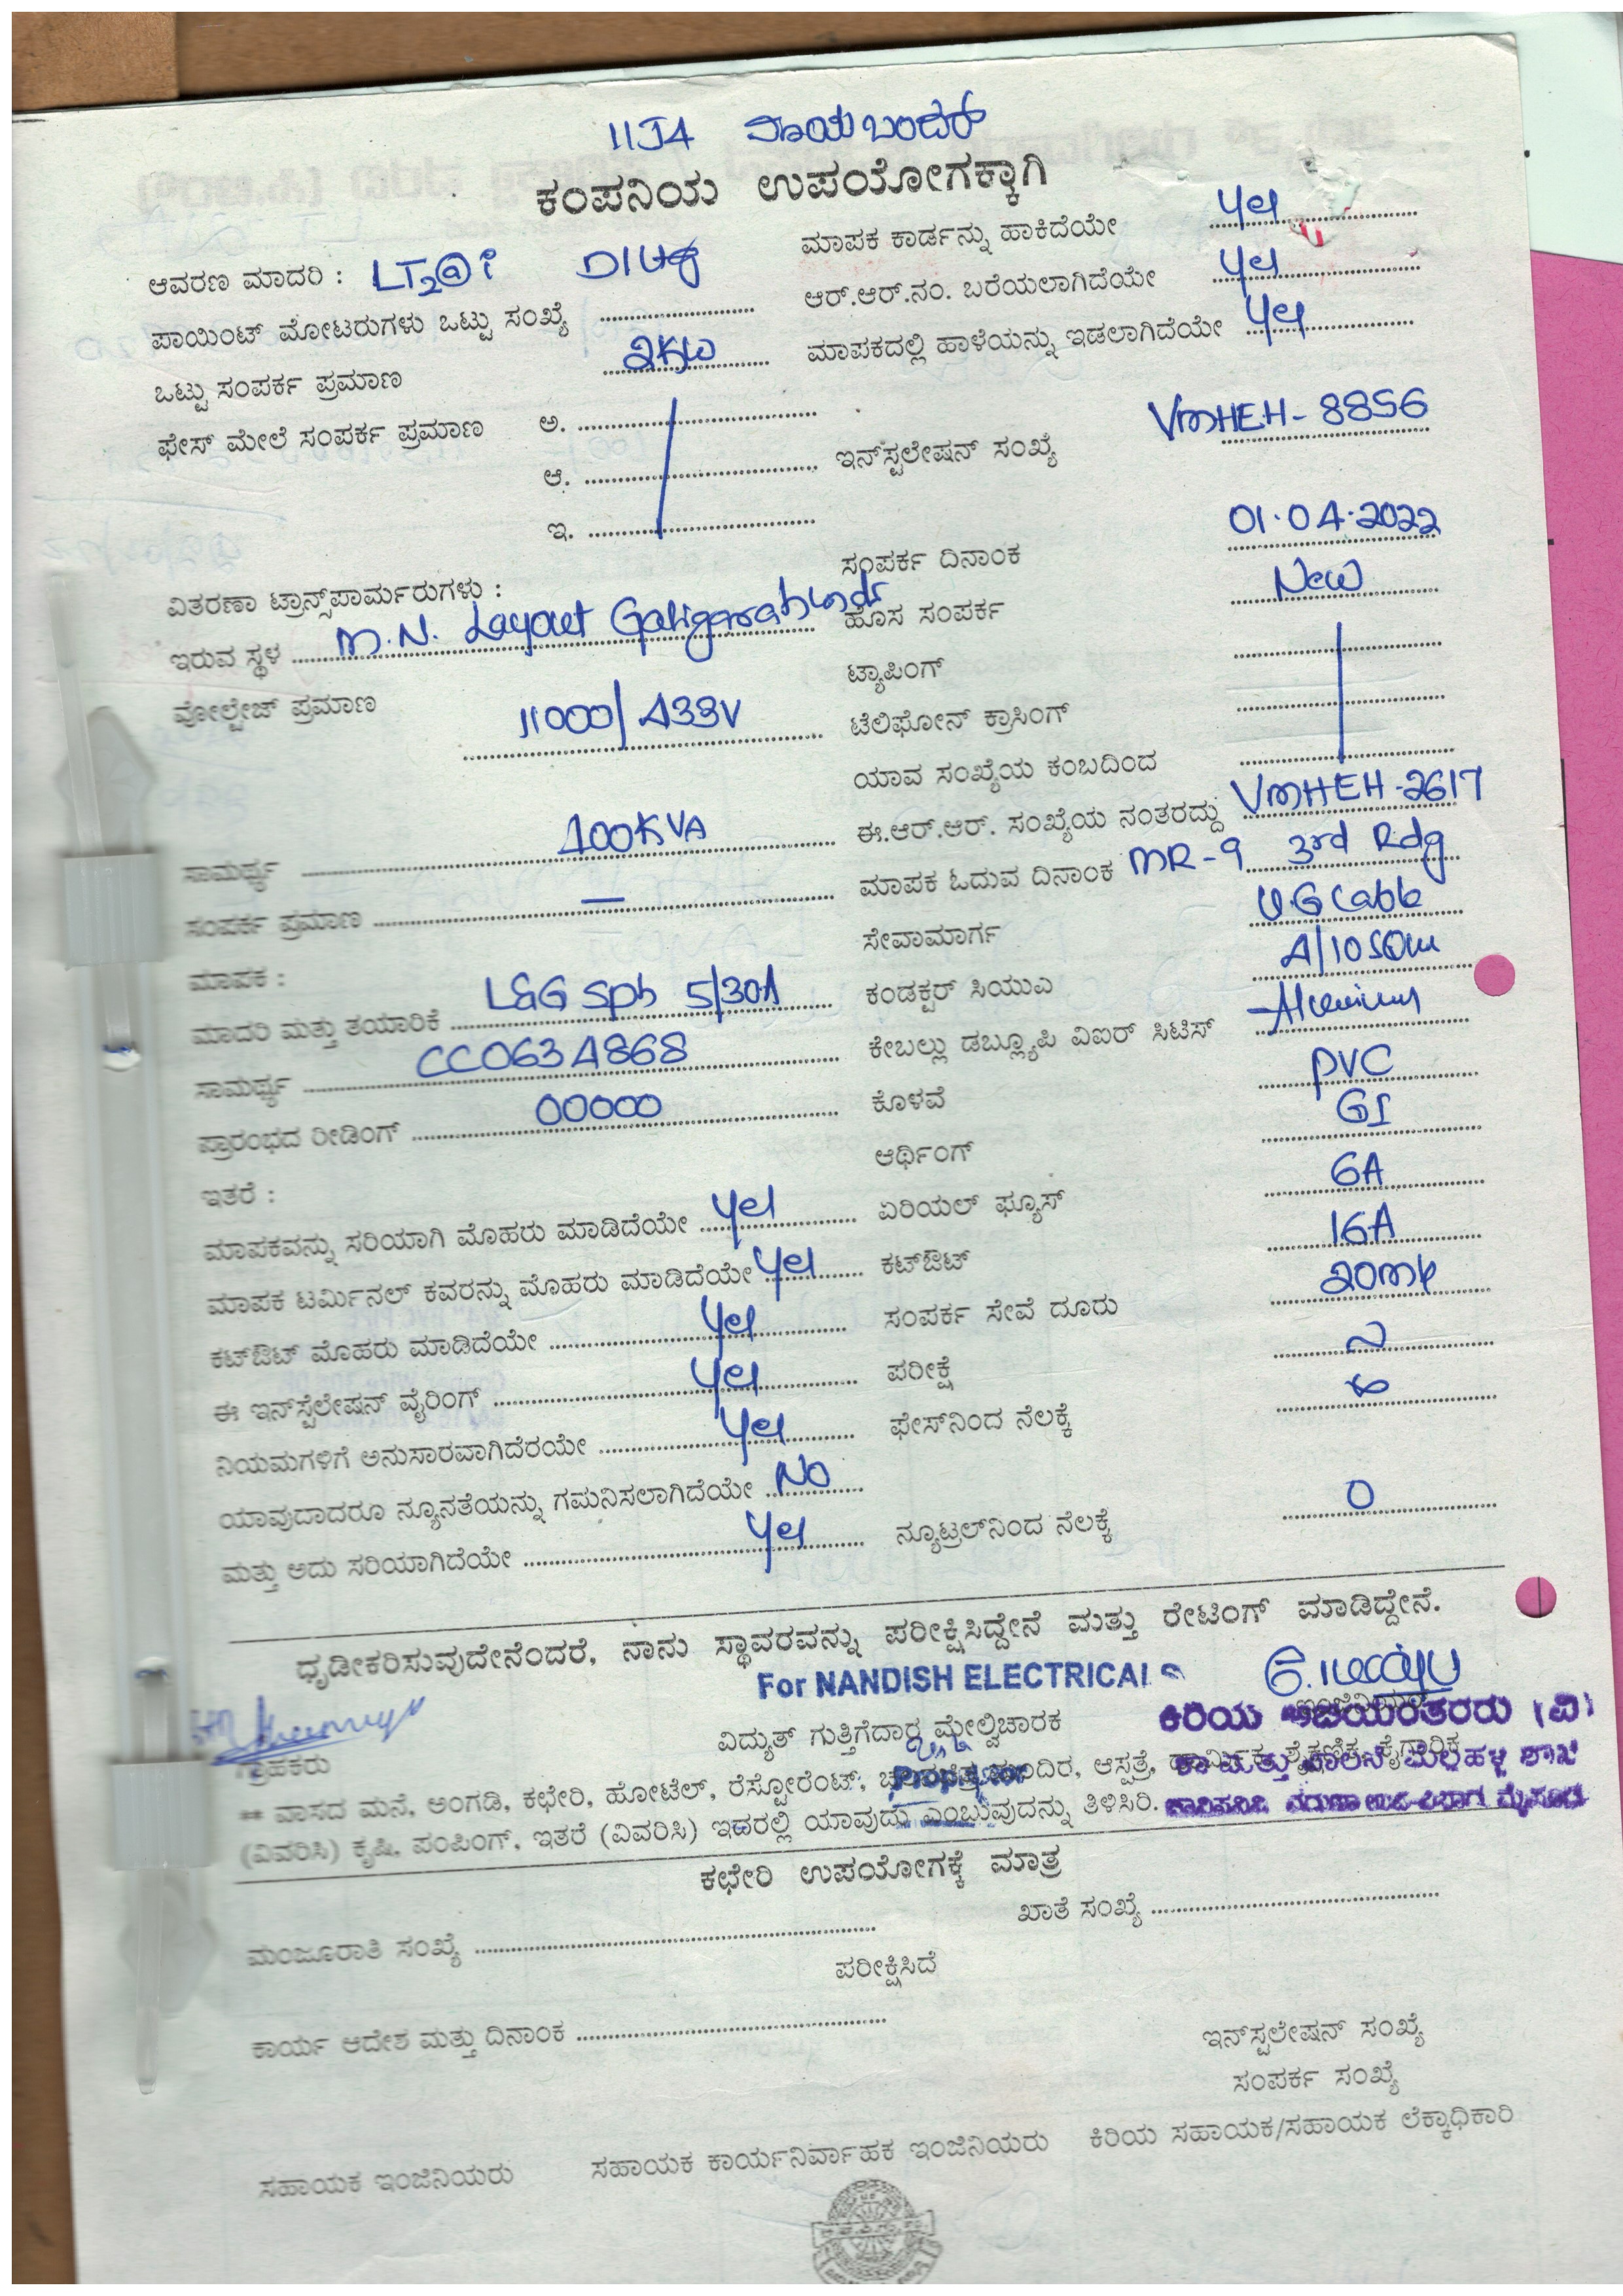 11J4
ಕಂಪನಿಯ ಉಪಯೋಗಕ್ಕಾಗಿ
ಆವರಣ ಮಾದರಿ : LT2@i
ಪಾಯಿಂಟ್ ಮೋಟರುಗಳು ಒಟ್ಟು ಸಂಖ್ಯೆ
ಒಟ್ಟು ಸಂಪರ್ಕ ಪ್ರಮಾಣ 2KW
ಫೇಸ್ ಮೇಲೆ ಸಂಪರ್ಕ ಪ್ರಮಾಣ ಅ.
ಆ.
ಇ.
ವಿತರಣಾ ಟ್ರಾನ್ಸ್‌ಪಾರ್ಮರುಗಳು :
ಇರುವ ಸ್ಥಳ M.N. Layout
ವೋಲ್ಟೇಜ್ ಪ್ರಮಾಣ 11000/433V
ಸಾಮರ್ಥ್ಯ 100KVA
ಸಂಪರ್ಕ ಪ್ರಮಾಣ —
ಮಾಪಕ :
ಮಾದರಿ ಮತ್ತು ತಯಾರಿಕೆ L&G Sph 5/30A
ಸಾಮರ್ಥ್ಯ CC0634868
ಪ್ರಾರಂಭದ ರೀಡಿಂಗ್ 00000
ಇತರೆ :
ಮಾಪಕವನ್ನು ಸರಿಯಾಗಿ ಮೊಹರು ಮಾಡಿದೆಯೇ Yes
ಮಾಪಕ ಟರ್ಮಿನಲ್ ಕವರನ್ನು ಮೊಹರು ಮಾಡಿದೆಯೇ Yes
ಕಟ್‌ಔಟ್ ಮೊಹರು ಮಾಡಿದೆಯೇ Yes
ಈ ಇನ್‌ಸ್ಟಲೇಷನ್ ವೈರಿಂಗ್ Yes
ನಿಯಮಗಳಿಗೆ ಅನುಸಾರವಾಗಿದೆರಯೇ Yes
ಯಾವುದಾದರೂ ನ್ಯೂನತೆಯನ್ನು ಗಮನಿಸಲಾಗಿದೆಯೇ No
ಮತ್ತು ಅದು ಸರಿಯಾಗಿದೆಯೇ Yes
ಮಾಪಕ ಕಾರ್ಡನ್ನು ಹಾಕಿದೆಯೇ Yes
ಆರ್.ಆರ್.ನಂ. ಬರೆಯಲಾಗಿದೆಯೇ Yes
ಮಾಪಕದಲ್ಲಿ ಹಾಳೆಯನ್ನು ಇಡಲಾಗಿದೆಯೇ Yes
ಇನ್‌ಸ್ಟಲೇಷನ್ ಸಂಖ್ಯೆ VMHEH-8856
ಸಂಪರ್ಕ ದಿನಾಂಕ 01.04.2022
ಹೊಸ ಸಂಪರ್ಕ New
ಟ್ಯಾಪಿಂಗ್
ಟೆಲಿಫೋನ್ ಕ್ರಾಸಿಂಗ್
ಯಾವ ಸಂಖ್ಯೆಯ ಕಂಬದಿಂದ
ಈ.ಆರ್.ಆರ್. ಸಂಖ್ಯೆಯ ನಂತರದ್ದು VMHEH-2617
ಮಾಪಕ ಓದುವ ದಿನಾಂಕ MR-9 3rd Rdg
ಸೇವಾಮಾರ್ಗ U.G Cable
ಕಂಡಕ್ಟರ್ ಸಿಯುಎ
ಕೇಬಲ್ಲು ಡಬ್ಲ್ಯೂಪಿ ವಿಐರ್ ಸಿಟಿಸ್
ಕೊಳವೆ PVC
ಆರ್ಥಿಂಗ್ GI
ಏರಿಯಲ್ ಫ್ಯೂಸ್ 6A
ಕಟ್‌ಔಟ್ 16A
ಸಂಪರ್ಕ ಸೇವೆ ದೂರು
ಪರೀಕ್ಷೆ
ಫೇಸ್‌ನಿಂದ ನೆಲಕ್ಕೆ
ನ್ಯೂಟ್ರಲ್‌ನಿಂದ ನೆಲಕ್ಕೆ 0
ಧೃಡೀಕರಿಸುವುದೇನೆಂದರೆ, ನಾನು ಸ್ಥಾವರವನ್ನು ಪರೀಕ್ಷಿಸಿದ್ದೇನೆ ಮತ್ತು ರೇಟಿಂಗ್ ಮಾಡಿದ್ದೇನೆ.
For NANDISH ELECTRICALS
ಗ್ರಾಹಕರು
ವಿದ್ಯುತ್ ಗುತ್ತಿಗೆದಾರ ಮೇಲ್ವಿಚಾರಕ
Proprietor
** ವಾಸದ ಮನೆ, ಅಂಗಡಿ, ಕಛೇರಿ, ಹೋಟೆಲ್, ರೆಸ್ಟೋರೆಂಟ್, ಆಸ್ಪತ್ರೆ, ಶೈಕ್ಷಣಿಕ, ಕೈಗಾರಿಕೆ
(ವಿವರಿಸಿ) ಕೃಷಿ, ಪಂಪಿಂಗ್, ಇತರೆ (ವಿವರಿಸಿ) ಇದರಲ್ಲಿ ಯಾವುದು ಎಂಬುವುದನ್ನು ತಿಳಿಸಿರಿ.
ಕಛೇರಿ ಉಪಯೋಗಕ್ಕೆ ಮಾತ್ರ
ಮಂಜೂರಾತಿ ಸಂಖ್ಯೆ ಖಾತೆ ಸಂಖ್ಯೆ
ಪರೀಕ್ಷಿಸಿದೆ
ಕಾರ್ಯ ಆದೇಶ ಮತ್ತು ದಿನಾಂಕ
ಇನ್‌ಸ್ಟಲೇಷನ್ ಸಂಖ್ಯೆ
ಸಂಪರ್ಕ ಸಂಖ್ಯೆ
ಸಹಾಯಕ ಇಂಜಿನಿಯರು ಸಹಾಯಕ ಕಾರ್ಯನಿರ್ವಾಹಕ ಇಂಜಿನಿಯರು ಕಿರಿಯ ಸಹಾಯಕ/ಸಹಾಯಕ ಲೆಕ್ಕಾಧಿಕಾರಿ